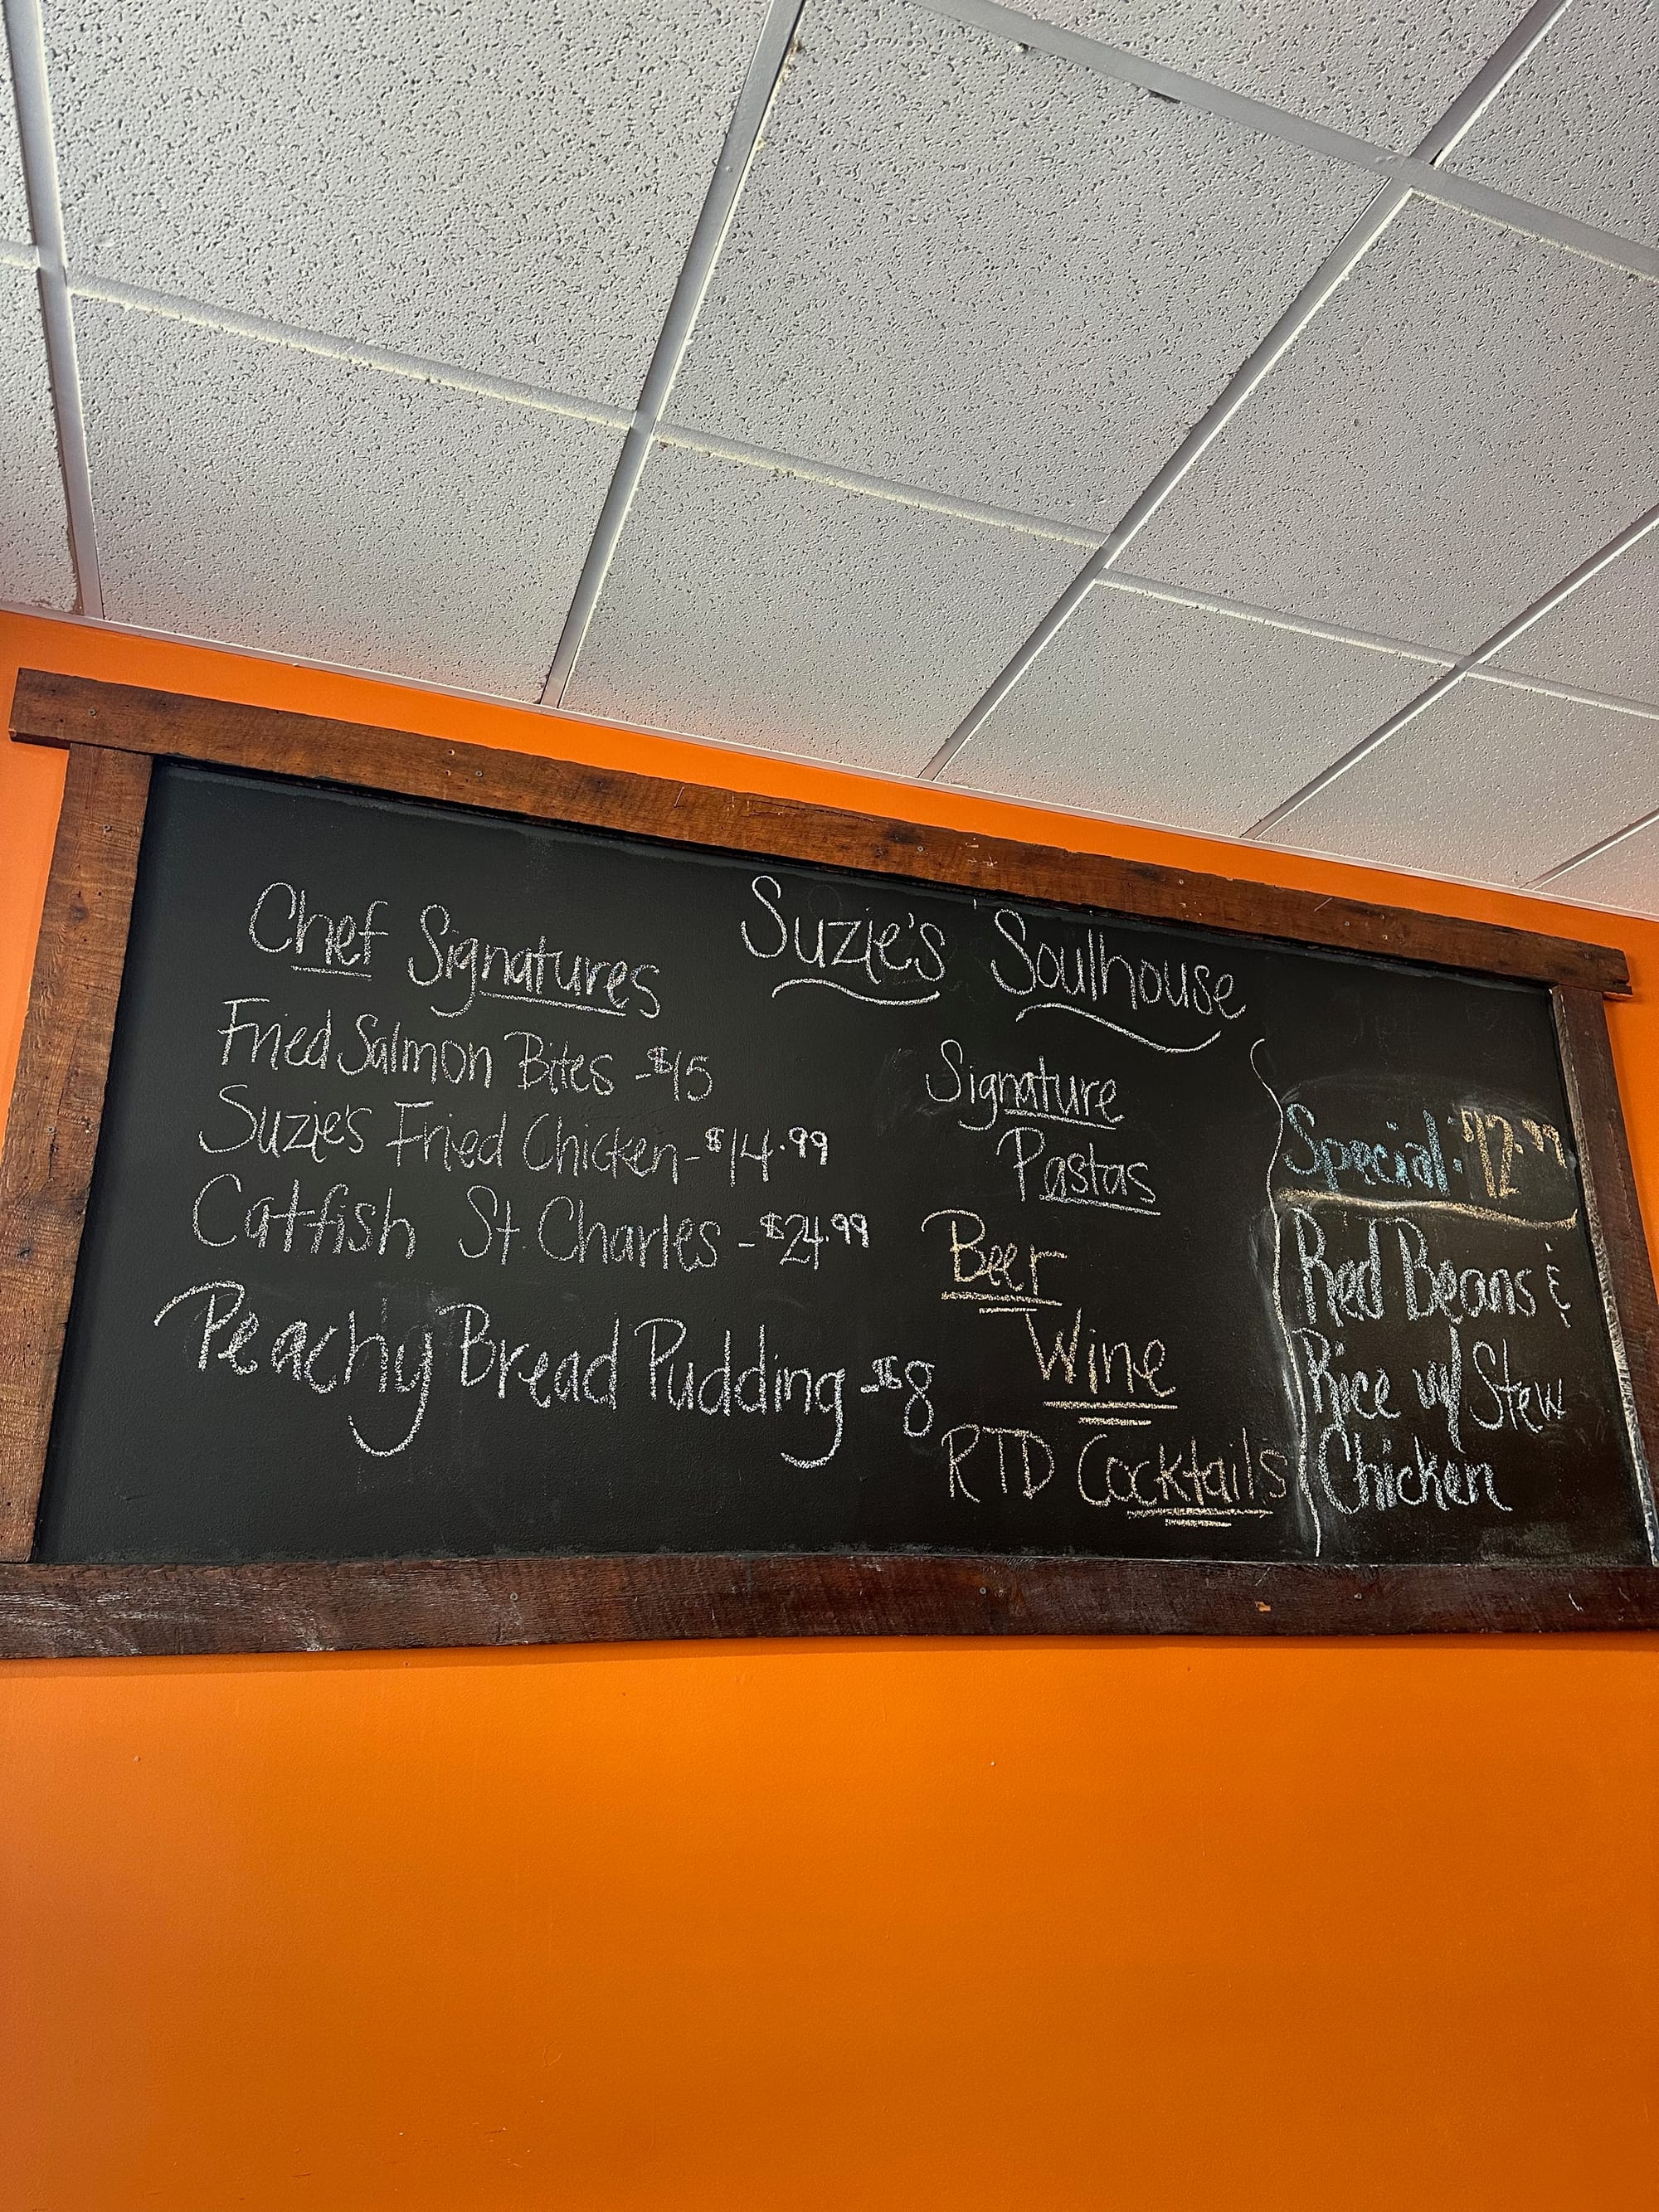 Suzie's Soulhouse
Chef Signatures
Fried Salmon Bites - $15
Suzie's Fried Chicken - $14.99
Catfish St. Charles - $24.99
Peachy Bread Pudding - $8
Signature
Pastas
Beer
Wine
RTD Cocktails
Special: $12.99
Red Beans &
Rice w/ Stew
Chicken